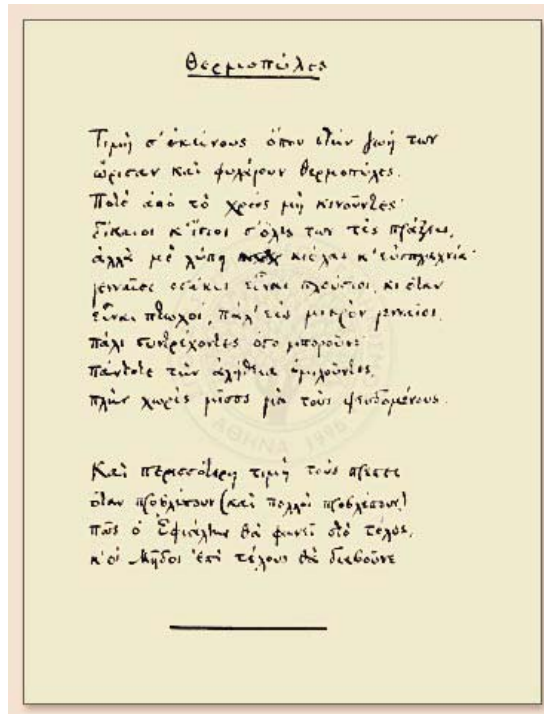 Θερμοπύλες
Τιμή σ' εκείνους όπου στην ζωή των
ώρισαν και φυλάγουν Θερμοπύλες.
Ποτέ από το χρέος μη κινούντες·
δίκαιοι κ' ίσιοι σ' όλες των τες πράξεις,
αλλά με λύπη κιόλας κ' ευσπλαχνία·
γενναίοι οσάκις είναι πλούσιοι, κι όταν
είναι πτωχοί, πάλ' εις μικρόν γενναίοι,
πάλι συντρέχοντες όσο μπορούνε·
πάντοτε την αλήθεια ομιλούντες,
πλην χωρίς μίσος για τους ψευδομένους.
Και περισσότερη τιμή τους πρέπει
όταν προβλέπουν (και πολλοί προβλέπουν)
πως ο Εφιάλτης θα φανεί στο τέλος,
κ' οι Μήδοι επί τέλους θα διαβούνε
ΑΘΗΝΑ 1996